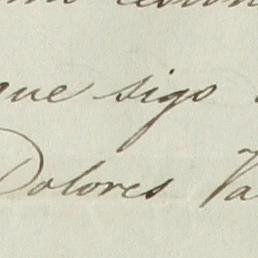 que sigo
Dolores Va